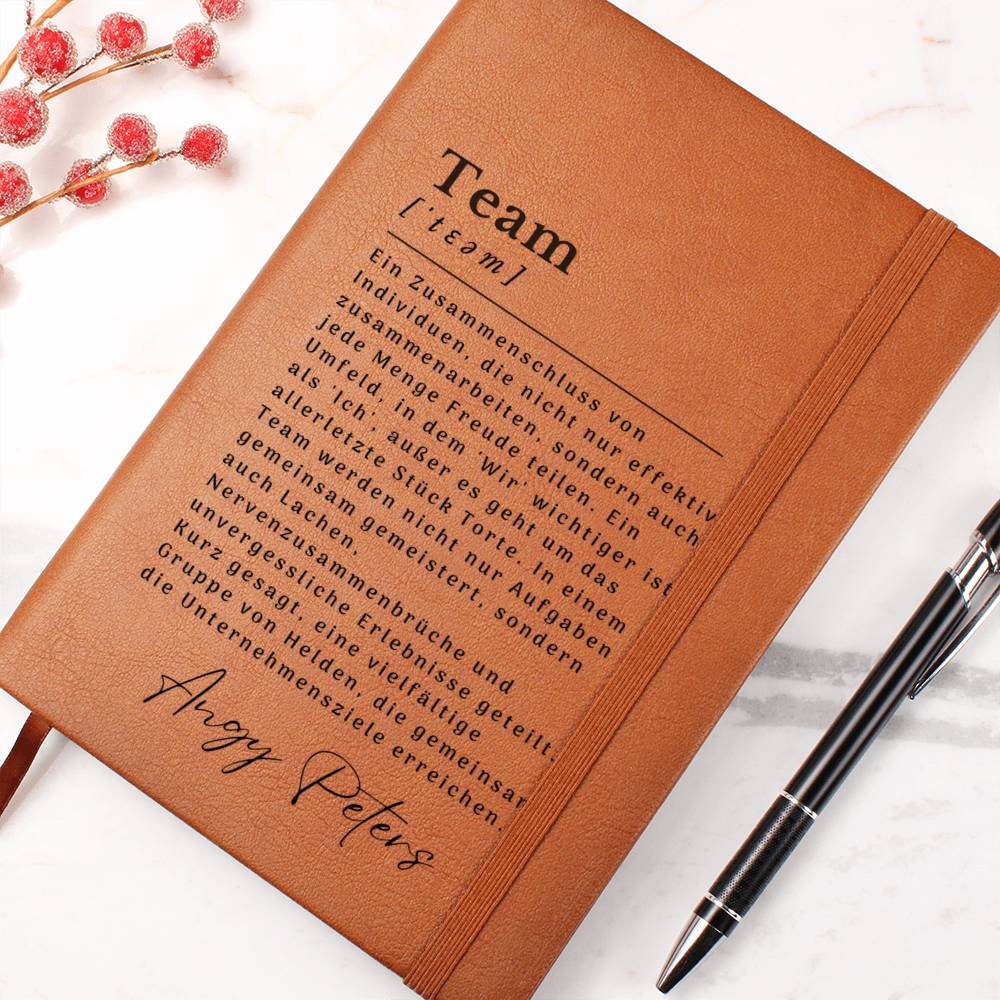 Team
['tɛəm]
Ein Zusammenschluss von
Individuen, die nicht nur effektiv
zusammenarbeiten, sondern auch
jede Menge Freude teilen. Ein
Umfeld, in dem 'Wir' wichtiger ist
als 'Ich', außer es geht um das
allerletzte Stück Torte. In einem
Team werden nicht nur Aufgaben
gemeinsam gemeistert, sondern
auch Lachen,
Nervenzusammenbrüche und
unvergessliche Erlebnisse geteilt.
Kurz gesagt, eine vielfältige
Gruppe von Helden, die gemeinsam
die Unternehmensziele erreichen.
Angy Peters